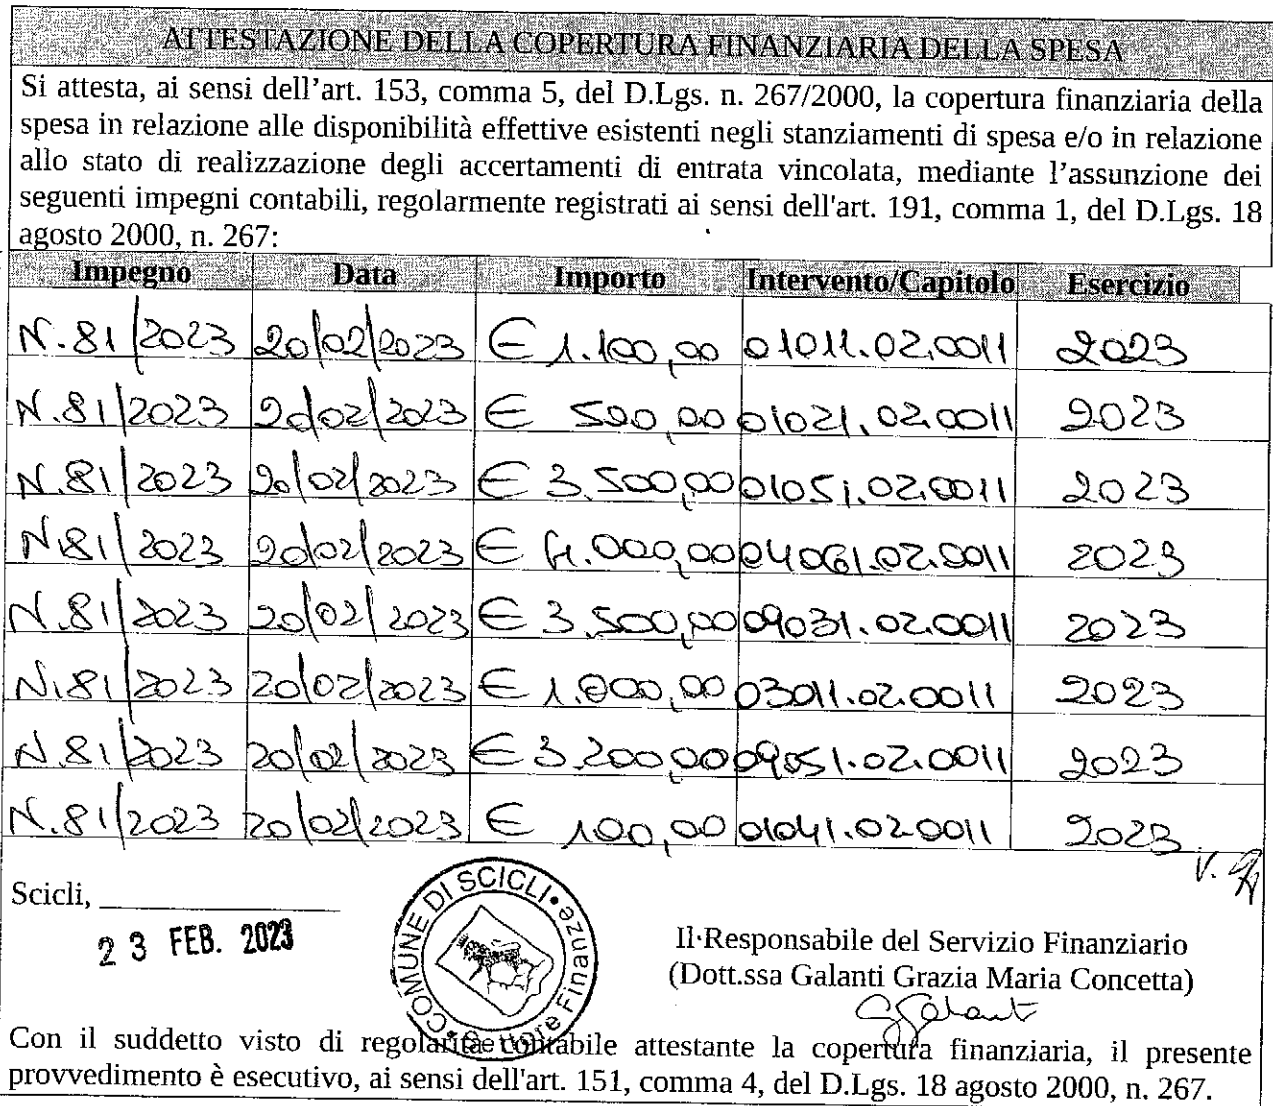 ATTESTAZIONE DELLA COPERTURA FINANZIARIA DELLA SPESA
Si attesta, ai sensi dell'art. 153, comma 5, del D.Lgs. n. 267/2000, la copertura finanziaria della
spesa in relazione alle disponibilità effettive esistenti negli stanziamenti di spesa e/o in relazione
allo stato di realizzazione degli accertamenti di entrata vincolata, mediante l'assunzione dei
seguenti impegni contabili, regolarmente registrati ai sensi dell'art. 191, comma 1, del D.Lgs. 18
agosto 2000, n. 267:
Impegno Data Importo Intervento/Capitolo Esercizio
N.81/2023 20/02/2023 € 1.100,00 01011.02.0011 2023
N.81/2023 20/02/2023 € 500,00 01021.02.0011 2023
N.81/2023 20/02/2023 € 3.500,00 01051.02.0011 2023
N.81/2023 20/02/2023 € 4.000,00 04061.02.0011 2023
N.81/2023 20/02/2023 € 3.500,00 09031.02.0011 2023
N.81/2023 20/02/2023 € 1.000,00 03011.02.0011 2023
N.81/2023 20/02/2023 € 3.200,00 09051.02.0011 2023
N.81/2023 20/02/2023 € 100,00 01041.02.0011 2023
Scicli,
23 FEB. 2023
COMUNE DI SCICLI
Settore Finanze
Il Responsabile del Servizio Finanziario
(Dott.ssa Galanti Grazia Maria Concetta)
Con il suddetto visto di regolarità contabile attestante la copertura finanziaria, il presente
provvedimento è esecutivo, ai sensi dell'art. 151, comma 4, del D.Lgs. 18 agosto 2000, n. 267.